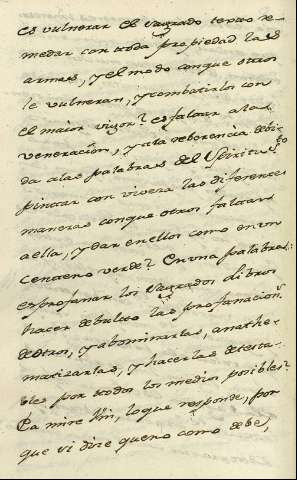 es vulnerar el Sagrado texto re-
medar con toda propiedad las
armas, y el modo conque otros
le vulneran, y combatirlos con
el maior vigor? es faltar a la
veneracion, y ata reberencia debi-
da a las palabras del Spiritu Sto
pintar con viveza las diferentes
maneras conque otros faltan
a ella, y dar en ellos como en un
centeno verde? En una palabra:
es profanar los Sagrados libros
hacer de bulto las profanacion.s
de otros, y abominarlas, anathe-
matizarlas, y hacerlas detesta-
bles por todos los medios posibles?
Ea mire Vm, lo que responde, por
que si dice que no como debe,